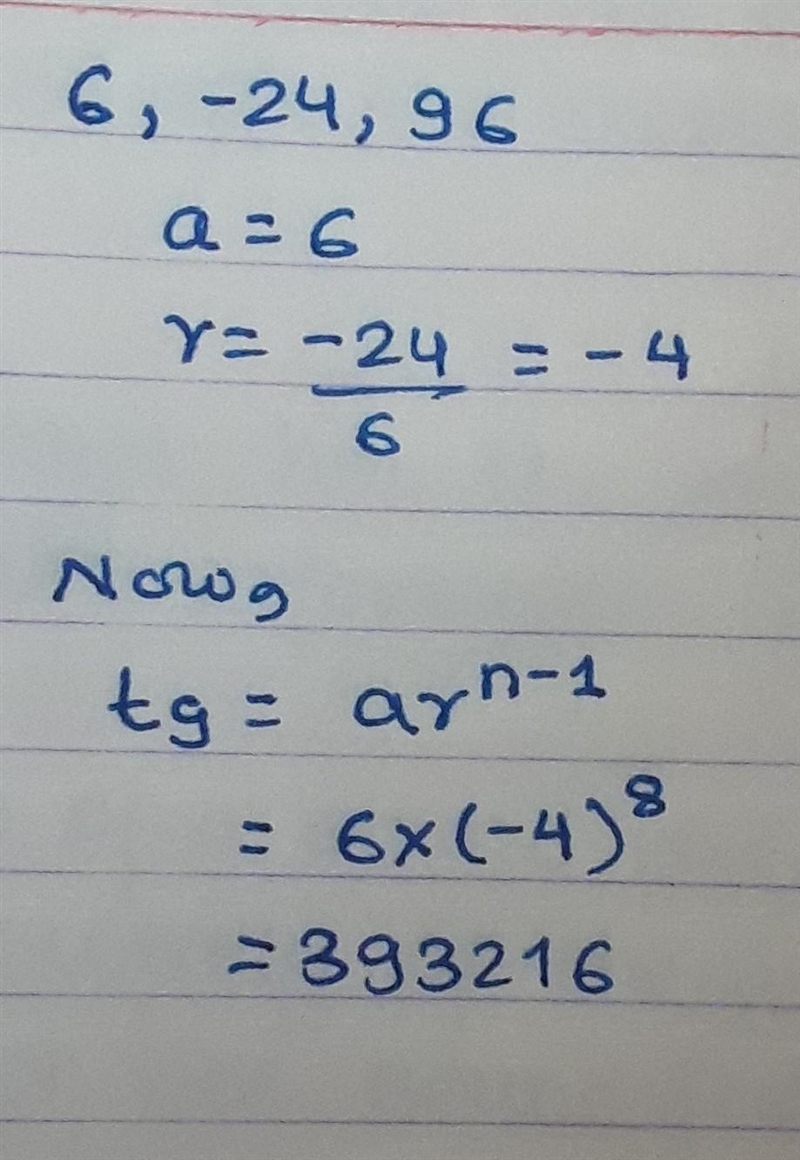 6, -24, 96
a = 6
r = -24/6 = -4
Now,
t9 = ar^n-1
= 6×(-4)^8
= 393216